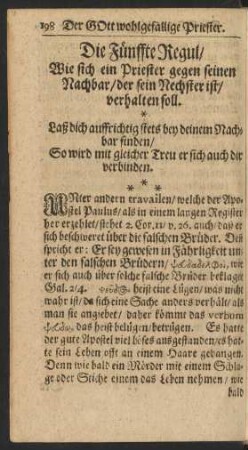 198 Der GOtt wohlgefällige Priester.
Die Fünffte Regul/
Wie sich ein Priester gegen seinen
Nachbar/der sein Nechster ist/
verhalten soll.
*
Laß dich auffrichtig stets bey deinem Nach-
bar finden/
So wird mit gleicher Treu er sich auch dir
verbinden.
* * *
UNter andern travailen/welche der Apo-
stel Paulus/ als in einem langen Register
her erzehlet/stehet 2. Cor. 11/ v. 26. auch/ daß er
sich beschweret über die falschen Brüder. Da
spricht er: Er sey gewesen in Fährligkeit un-
ter den falschen Brüdern/ wie
er sich auch über solche falsche Brüder beklagt
Gal. 2/4. heist eine Lügen/ was nicht
wahr ist/ da sich eine Sache anders verhält/ als
man sie angiebet/ daher kömmt das verbum
das heist belügen/betrügen. Es hatte
der gute Apostel viel böses ausgestanden/es hat-
te sein Leben offt an einem Haare gehangen.
Denn wie bald ein Mörder mit einem Schla-
ge oder Stiche einem das Leben nehmen/ wie
bald